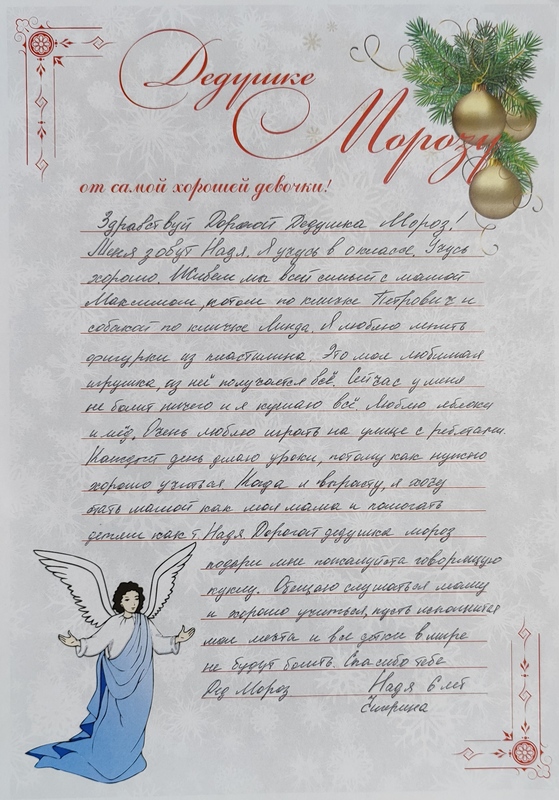 Дедушке
Морозу
от самой хорошей девочки!
Здравствуй Дорогой Дедушка Мороз!
Меня зовут Надя. Я учусь в 0 классе. Учусь
хорошо. Живем мы всей семьёй с мамой
Максимом, котом по кличке Петрович и
собакой по кличке Линда. Я люблю лепить
фигурки из пластилина. Это моя любимая
игрушка, из неё получается всё. Сейчас у меня
не болит ничего и я кушаю всё. Люблю яблоки
и мёд. Очень люблю играть на улице с ребятами.
Каждый день делаю уроки, потому как нужно
хорошо учиться. Когда я вырасту, я хочу
стать мамой как моя мама и помогать
детям как т. Надя Дорогой дедушка мороз
подари мне пожалуйста говорящую
куклу. Обещаю слушаться маму
и хорошо учиться, пусть исполнится
моя мечта и все детки в мире
не будут болеть. Спасибо тебе
Дед Мороз Надя 6 лет